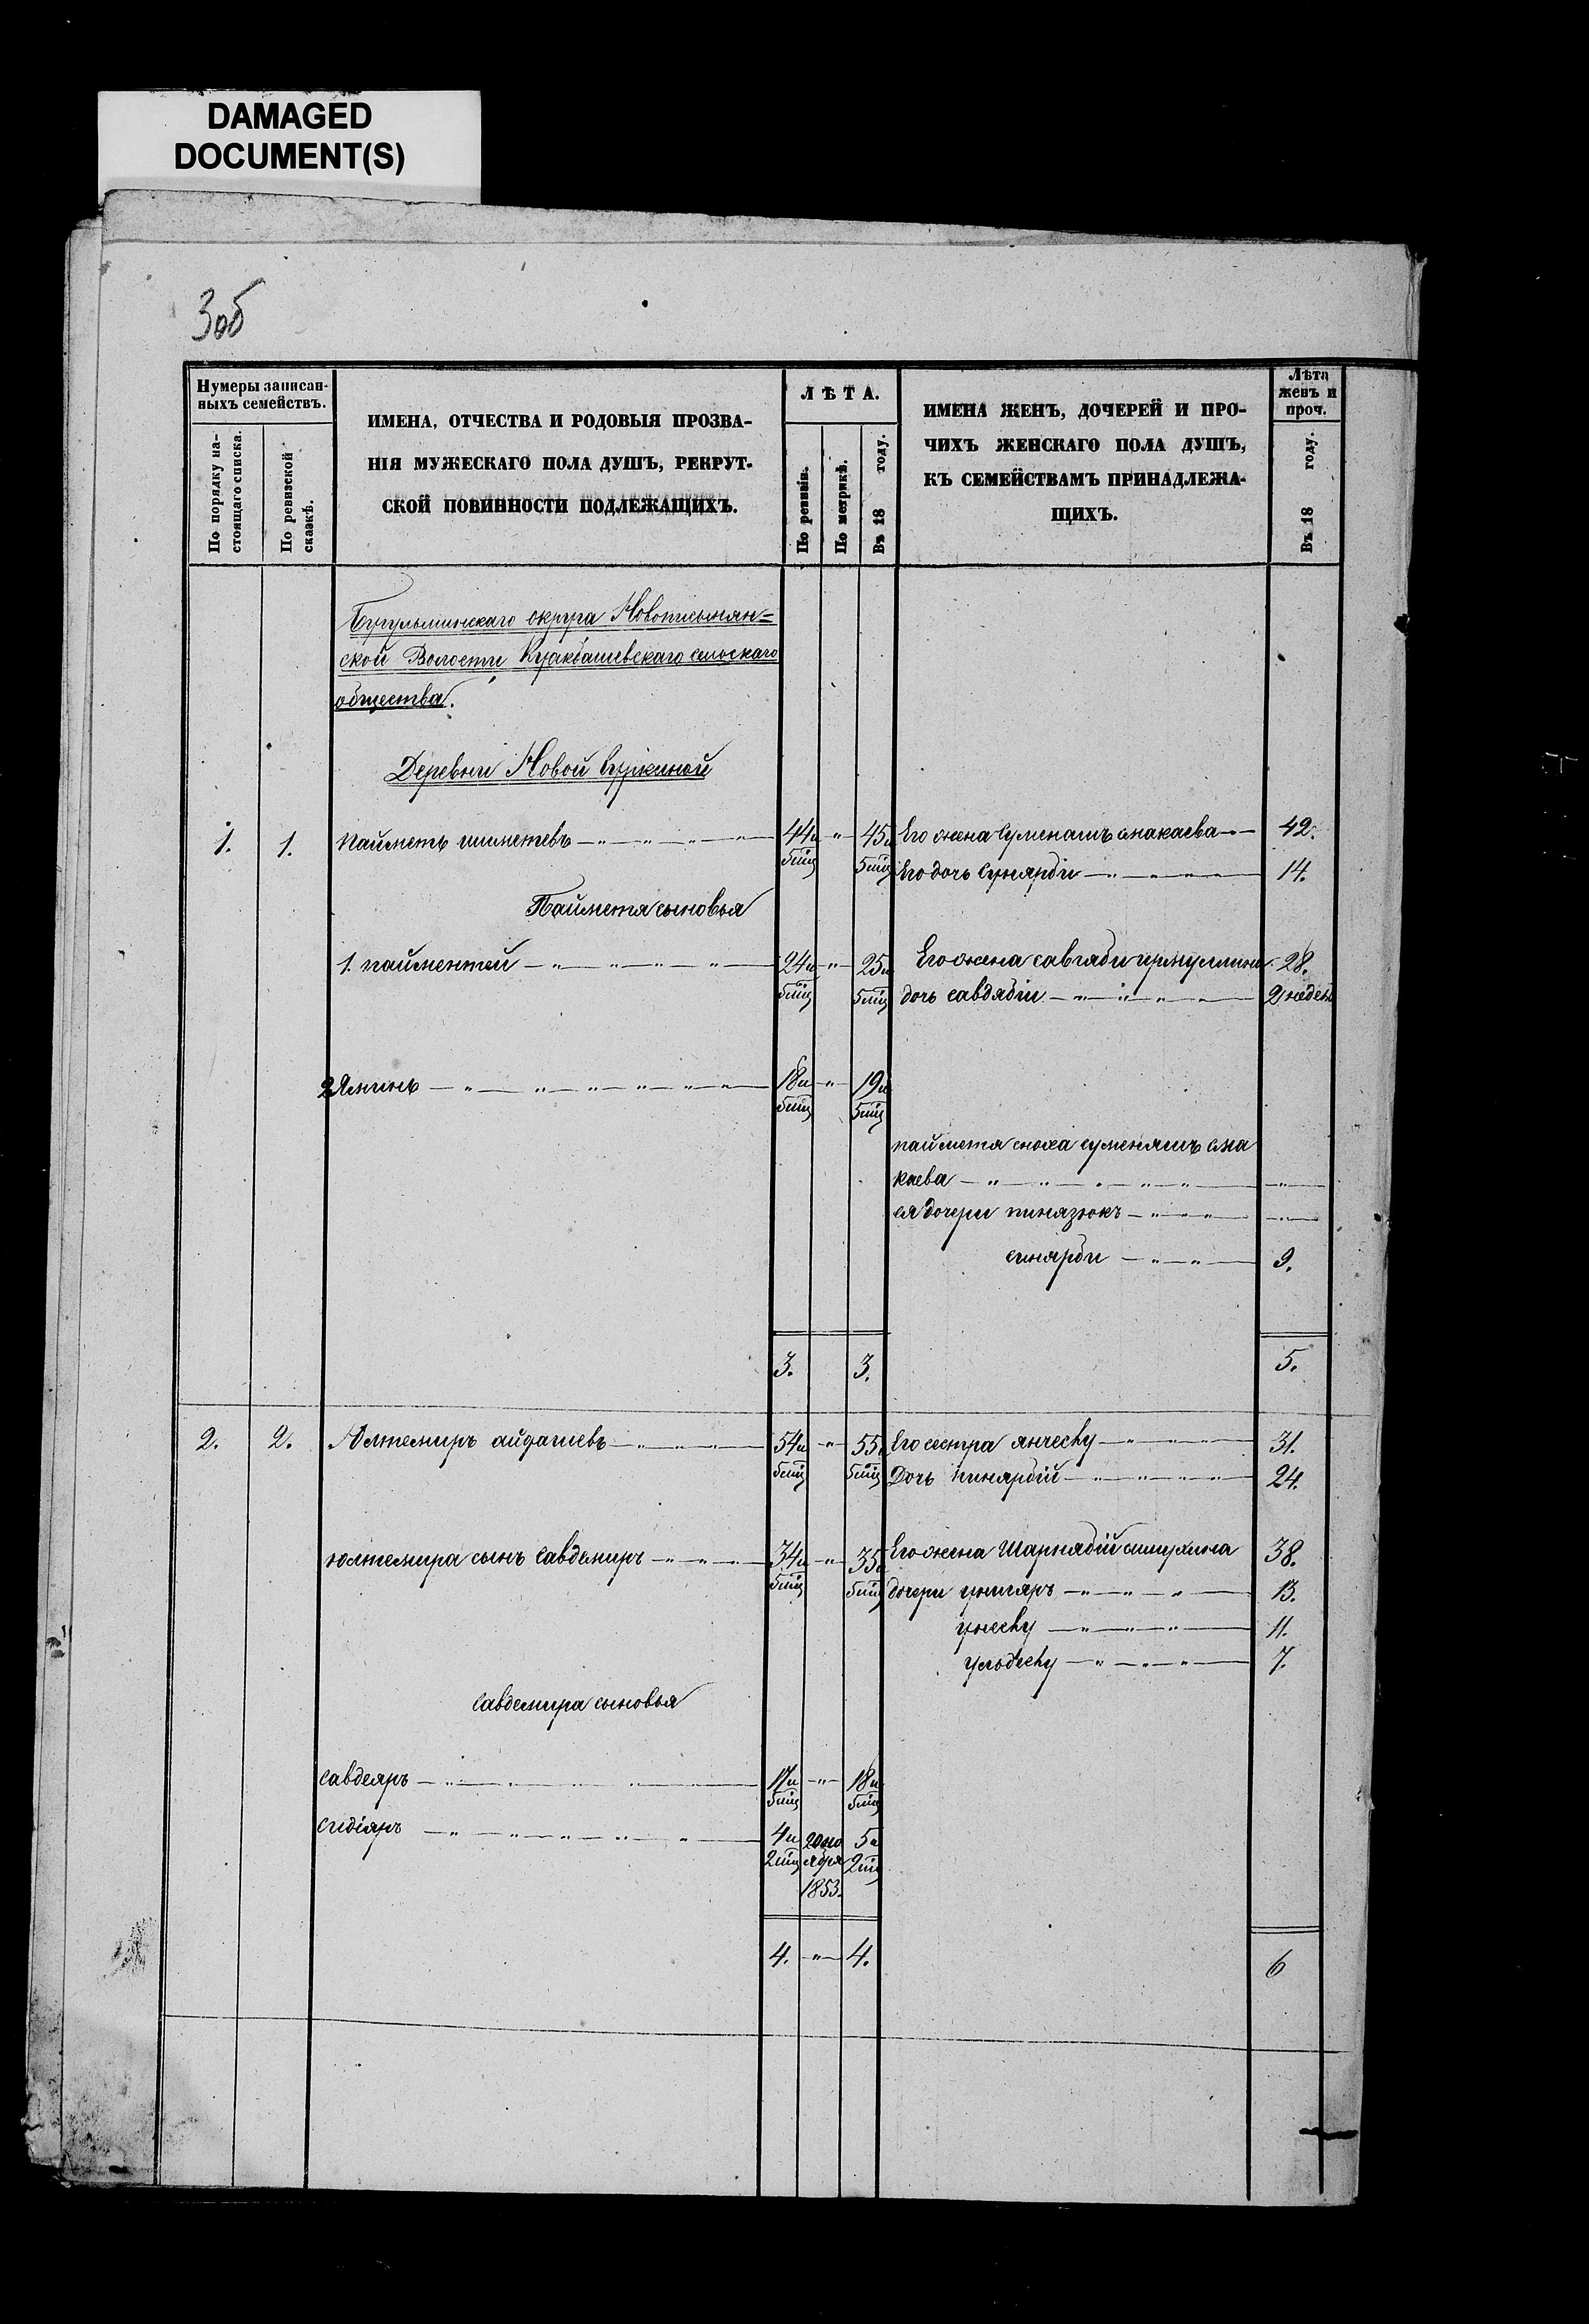 DAMAGED
DOCUMENT(S)
3об
Нумеры записан-
ныхъ семействъ.
По порядку на-
стоящаго списка.
По ревизской
сказкѣ.
ИМЕНА, ОТЧЕСТВА И РОДОВЫЯ ПРОЗВА-
НІЯ МУЖЕСКАГО ПОЛА ДУШЪ, РЕКРУТ-
СКОЙ ПОВИННОСТИ ПОДЛЕЖАЩИХЪ.
ЛѢТА.
По ревизіи.
По метрикѣ.
Въ 18 году.
ИМЕНА ЖЕНЪ, ДОЧЕРЕЙ И ПРО-
ЧИХЪ ЖЕНСКАГО ПОЛА ДУШЪ,
КЪ СЕМЕЙСТВАМЪ ПРИНАДЛЕЖА-
ЩИХЪ.
Лѣта
женъ и
проч.
Въ 18 году.
Бугульминскаго округа Новописьмян=
ской Волости, Куакбашевскаго сельскаго
общества.
Деревни Новой Суркиной
1. 1. Пайметь ишметевъ 44 и " 45 и Его жена Суменашъ смакаева 42.
5 миц 5 миц Его дочь Сунярби 14.
Паймета сыновья
1. пайментей 24 и " 25 и Его жена савгаби 28.
5 миц 5 миц дочь савдябіи 2 недел
2 Яминь 18 и " 19 и
5 миц 5 миц
паймета сноха суменяшъ сма
каева
ея дочери пинязюкъ
синярби 9.
3. 3. 5.
2. 2. Юлтемиръ айдашевъ 54 и " 55 и Его сестра янческу 31.
5 миц 5 миц Дочь пинярбій 24.
юлтемира сынъ Савдемиръ 34 и " 35 и Его жена Шарнябій 38.
5 миц 5 миц дочери уништяръ 13.
унеску 11.
7.
Савдемира сыновья
Савдеяръ 17 и " 18 и
5 миц 5 миц
Сидіяръ 4 и 20 но 5 и
2 миц ября 2 миц
1853.
4. " 4. 6